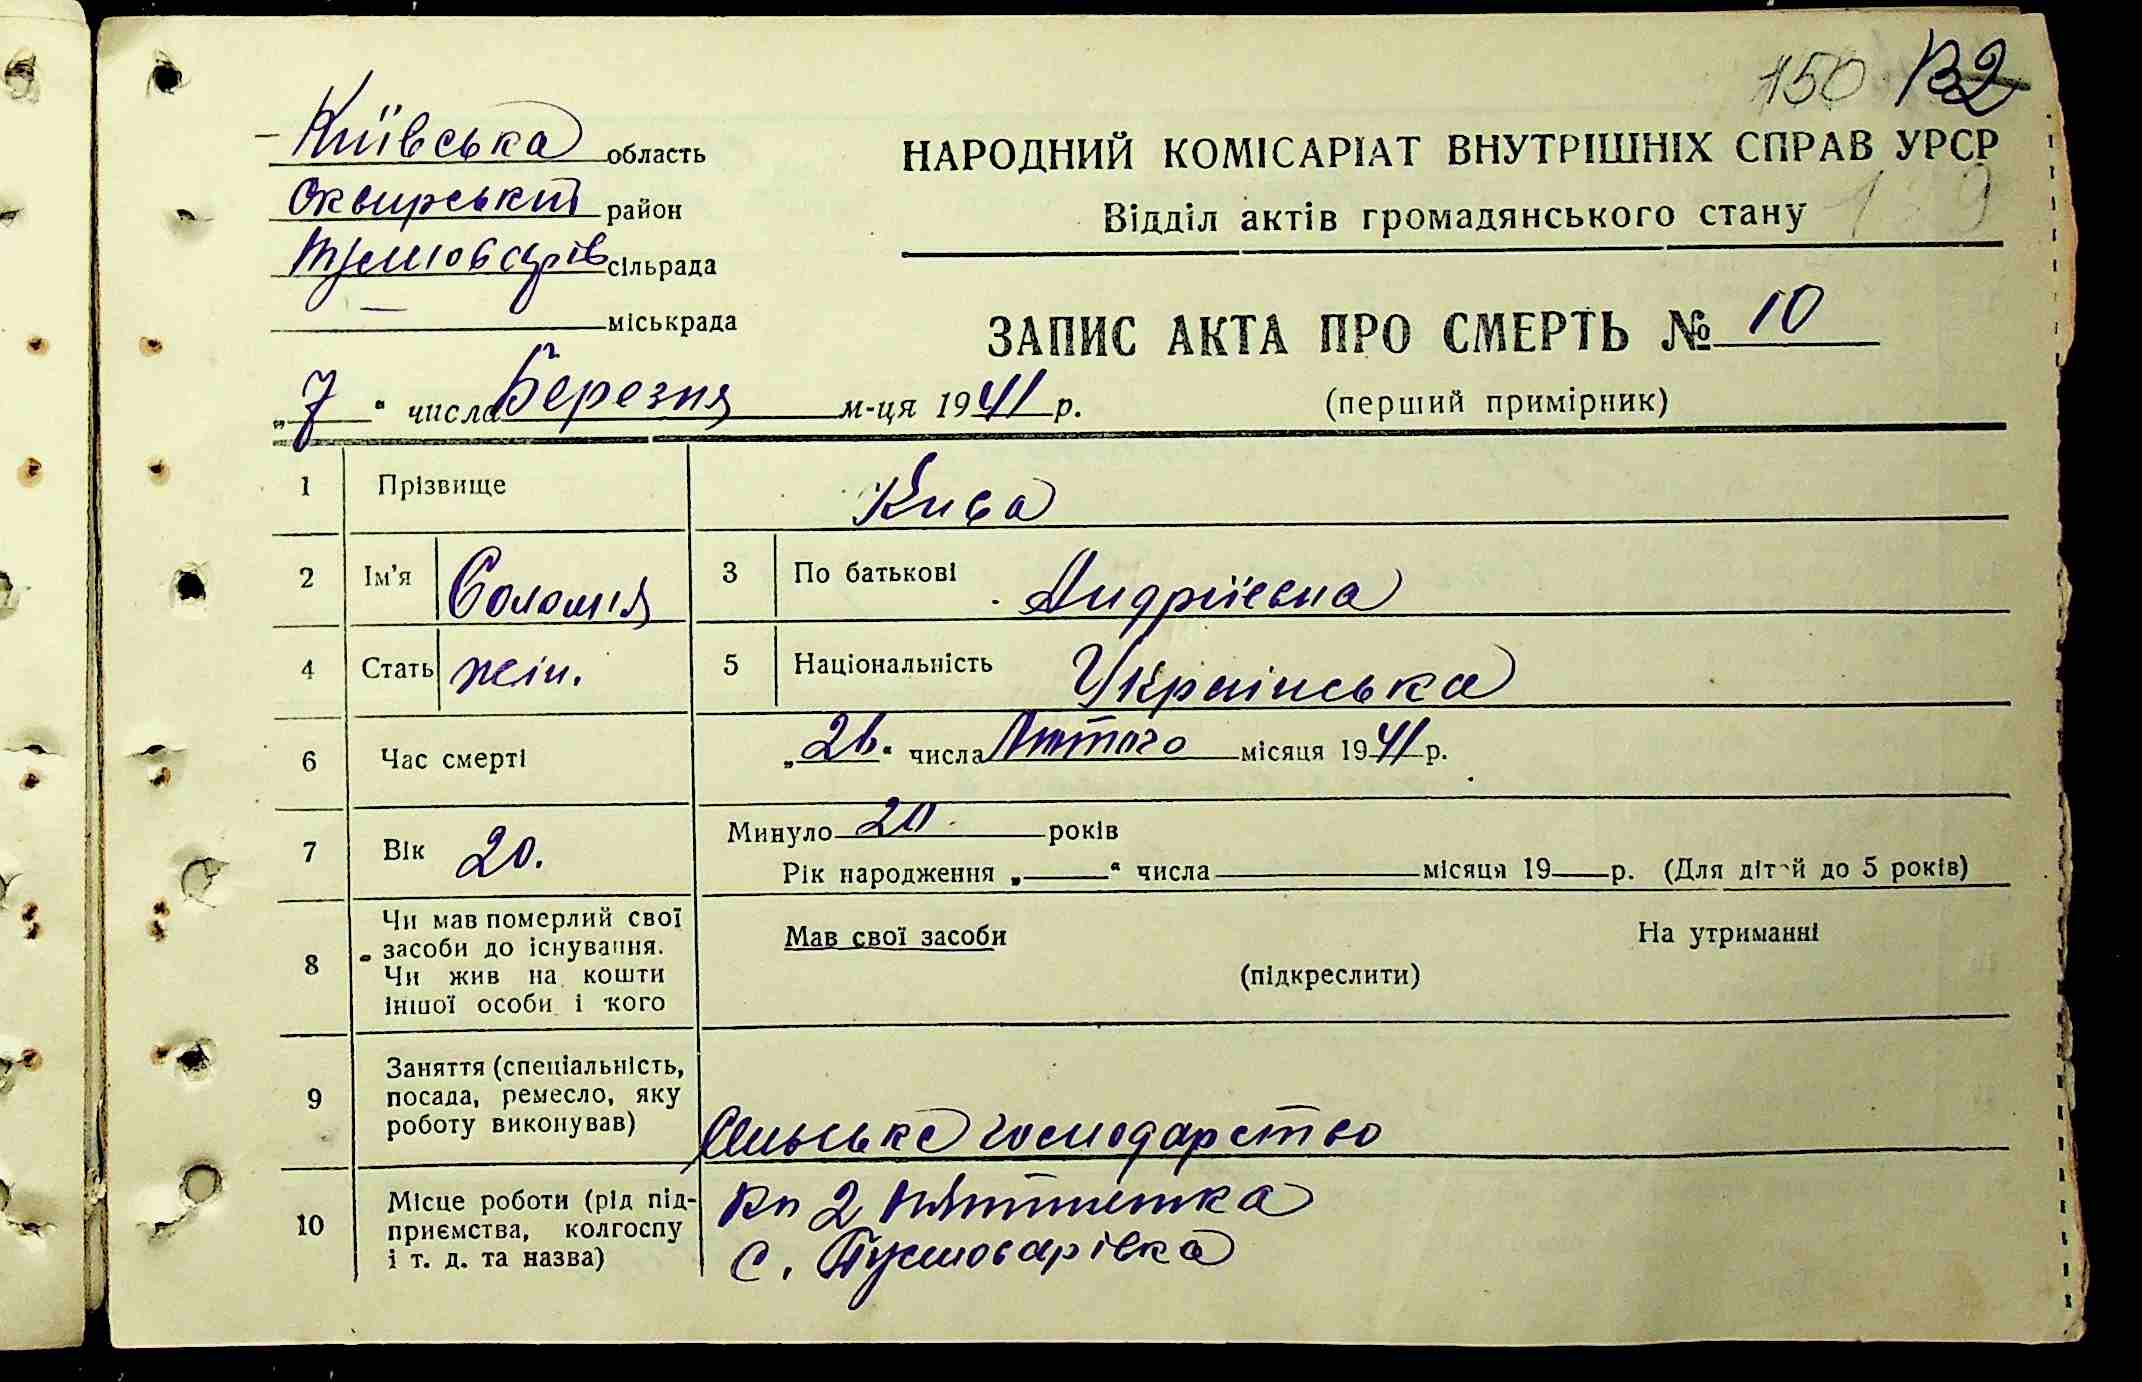 150 132
Київська область
НАРОДНИЙ КОМІСАРІАТ ВНУТРІШНІХ СПРАВ УРСР
Сквирський район
Відділ актів громадянського стану 139
сільрада
міськрада
ЗАПИС АКТА ПРО СМЕРТЬ № 10
„7“ числа Березня м-ця 1941 р.
(перший примірник)
1 Прізвище Кива
2 Ім'я Соломія 3 По батькові Андріївна
4 Стать жін. 5 Національність Українська
6 Час смерті „26“ числа Лютого місяця 1941 р.
7 Вік 20. Минуло 20 років
Рік народження „ “ числа місяця 19 р. (Для дітей до 5 років)
8 Чи мав померлий свої засоби до існування. Чи жив на кошти іншої особи і кого
Мав свої засоби На утриманні
(підкреслити)
9 Заняття (спеціальність, посада, ремесло, яку роботу виконував)
Сільське господарство
10 Місце роботи (рід підприємства, колгоспу і т. д. та назва)
Кп 2 П'ятилетка
с. Пустоварівка